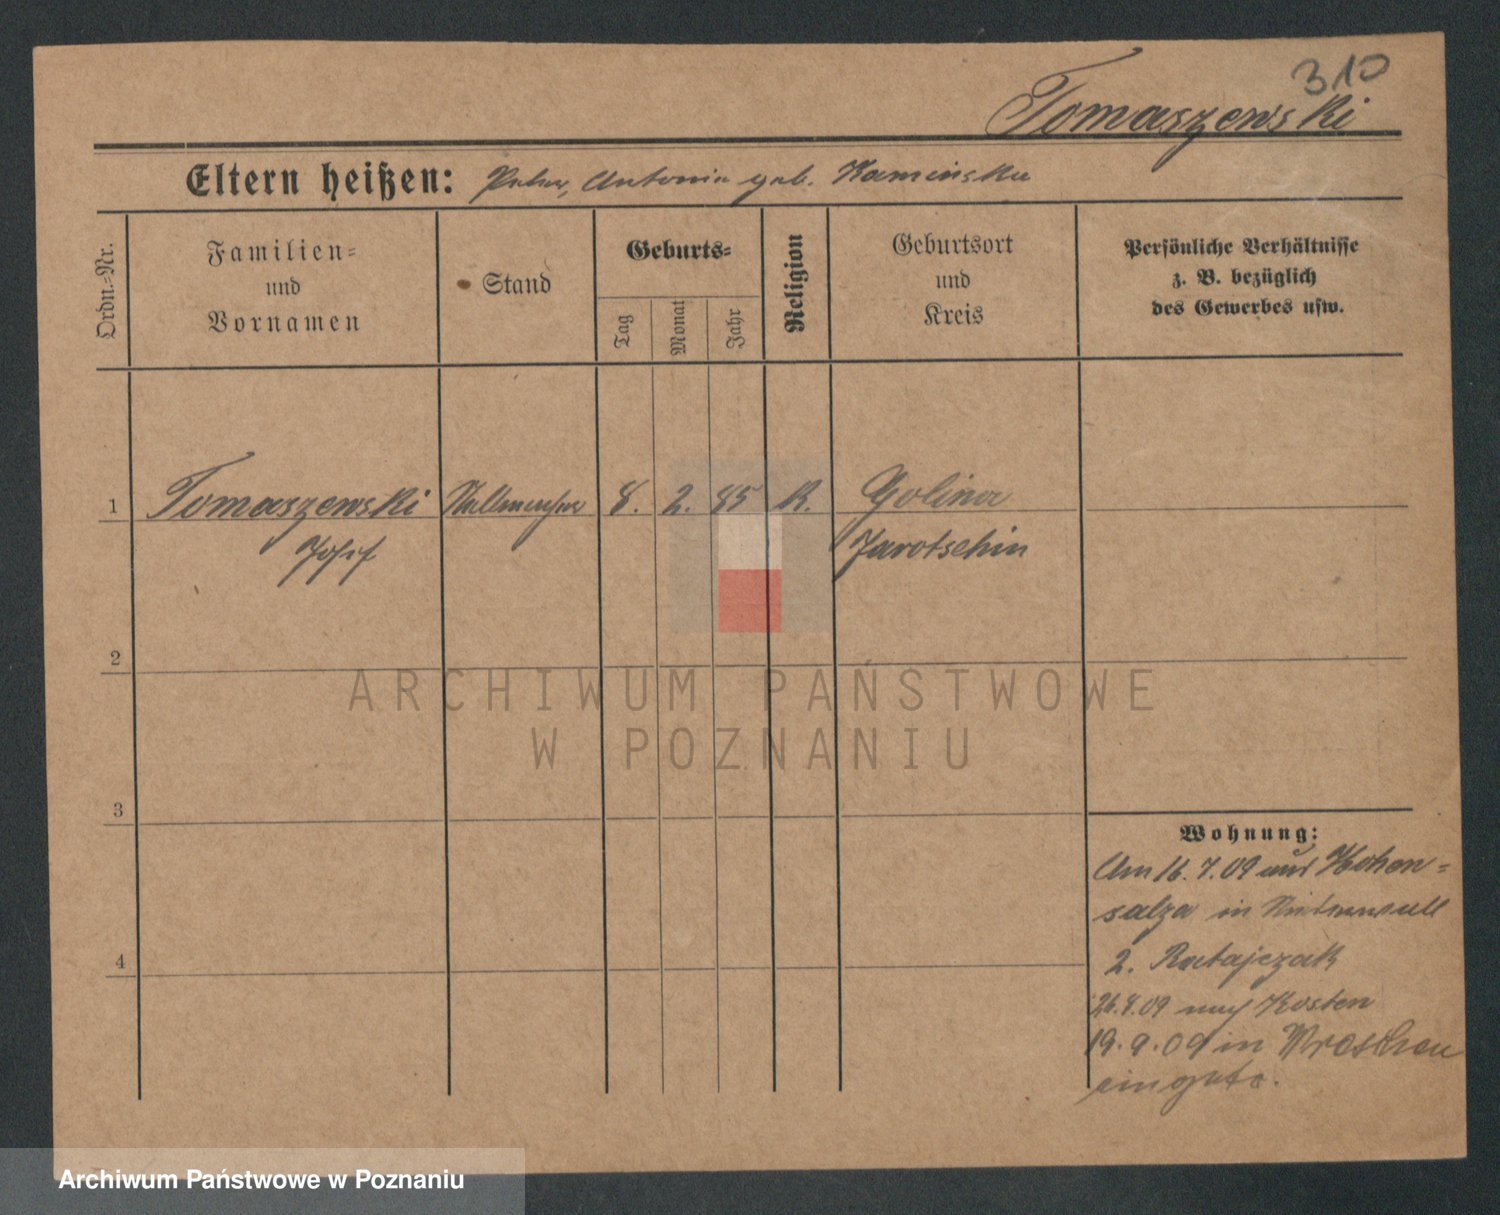 310
Tomaszewski
Eltern heißen: Peter, Antonie geb. Kaminska
Ordn.-Nr.
Familien-
und
Vornamen
Stand
Geburts-
Tag
Monat
Jahr
Religion
Geburtsort
und
Kreis
Persönliche Verhältnisse
z. B. bezüglich
des Gewerbes usw.
1 Tomaszewski Stellmacher 8. 2. 85 K. Golina
Josef Jarotschin
2
3
4
Wohnung:
Am 16. 7. 09 aus Hohen=
salza in
2. Ratajczak
26.8.09 nach Kosten
19.9.09 in Wreschen
eingetr.
ARCHIWUM PAŃSTWOWE
W POZNANIU
Archiwum Państwowe w Poznaniu